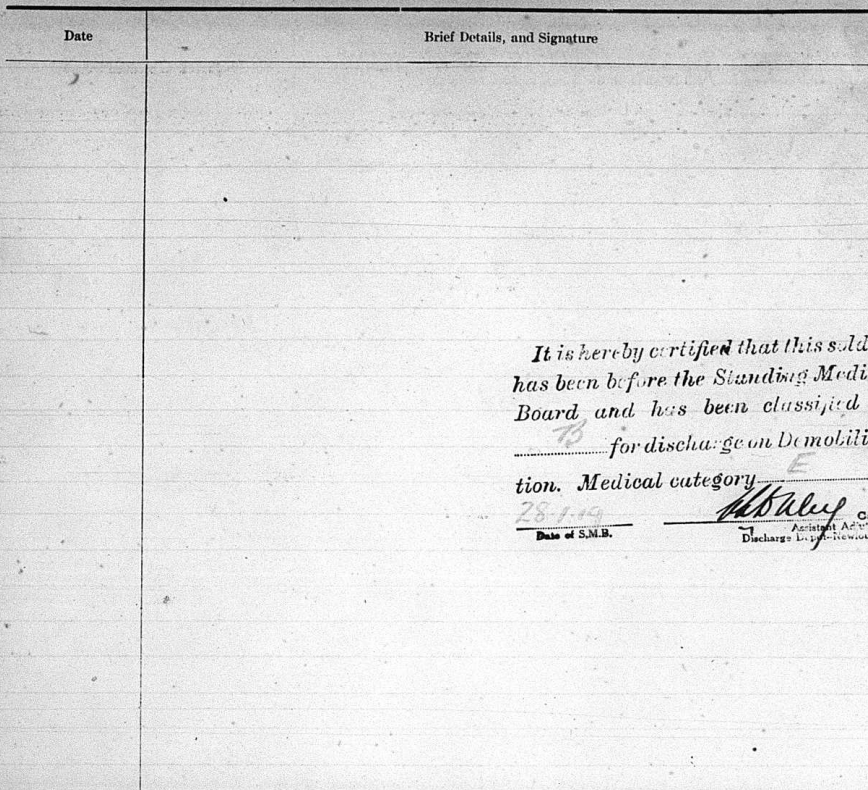 Date Brief Details, and Signature
It is hereby certified that this sold
has been before the Standing Medi
Board and has been classified
B for discharge on Demobili
tion. Medical category E
28-1-19
Date of S.M.B.
Assistant Adju
Discharge Depot